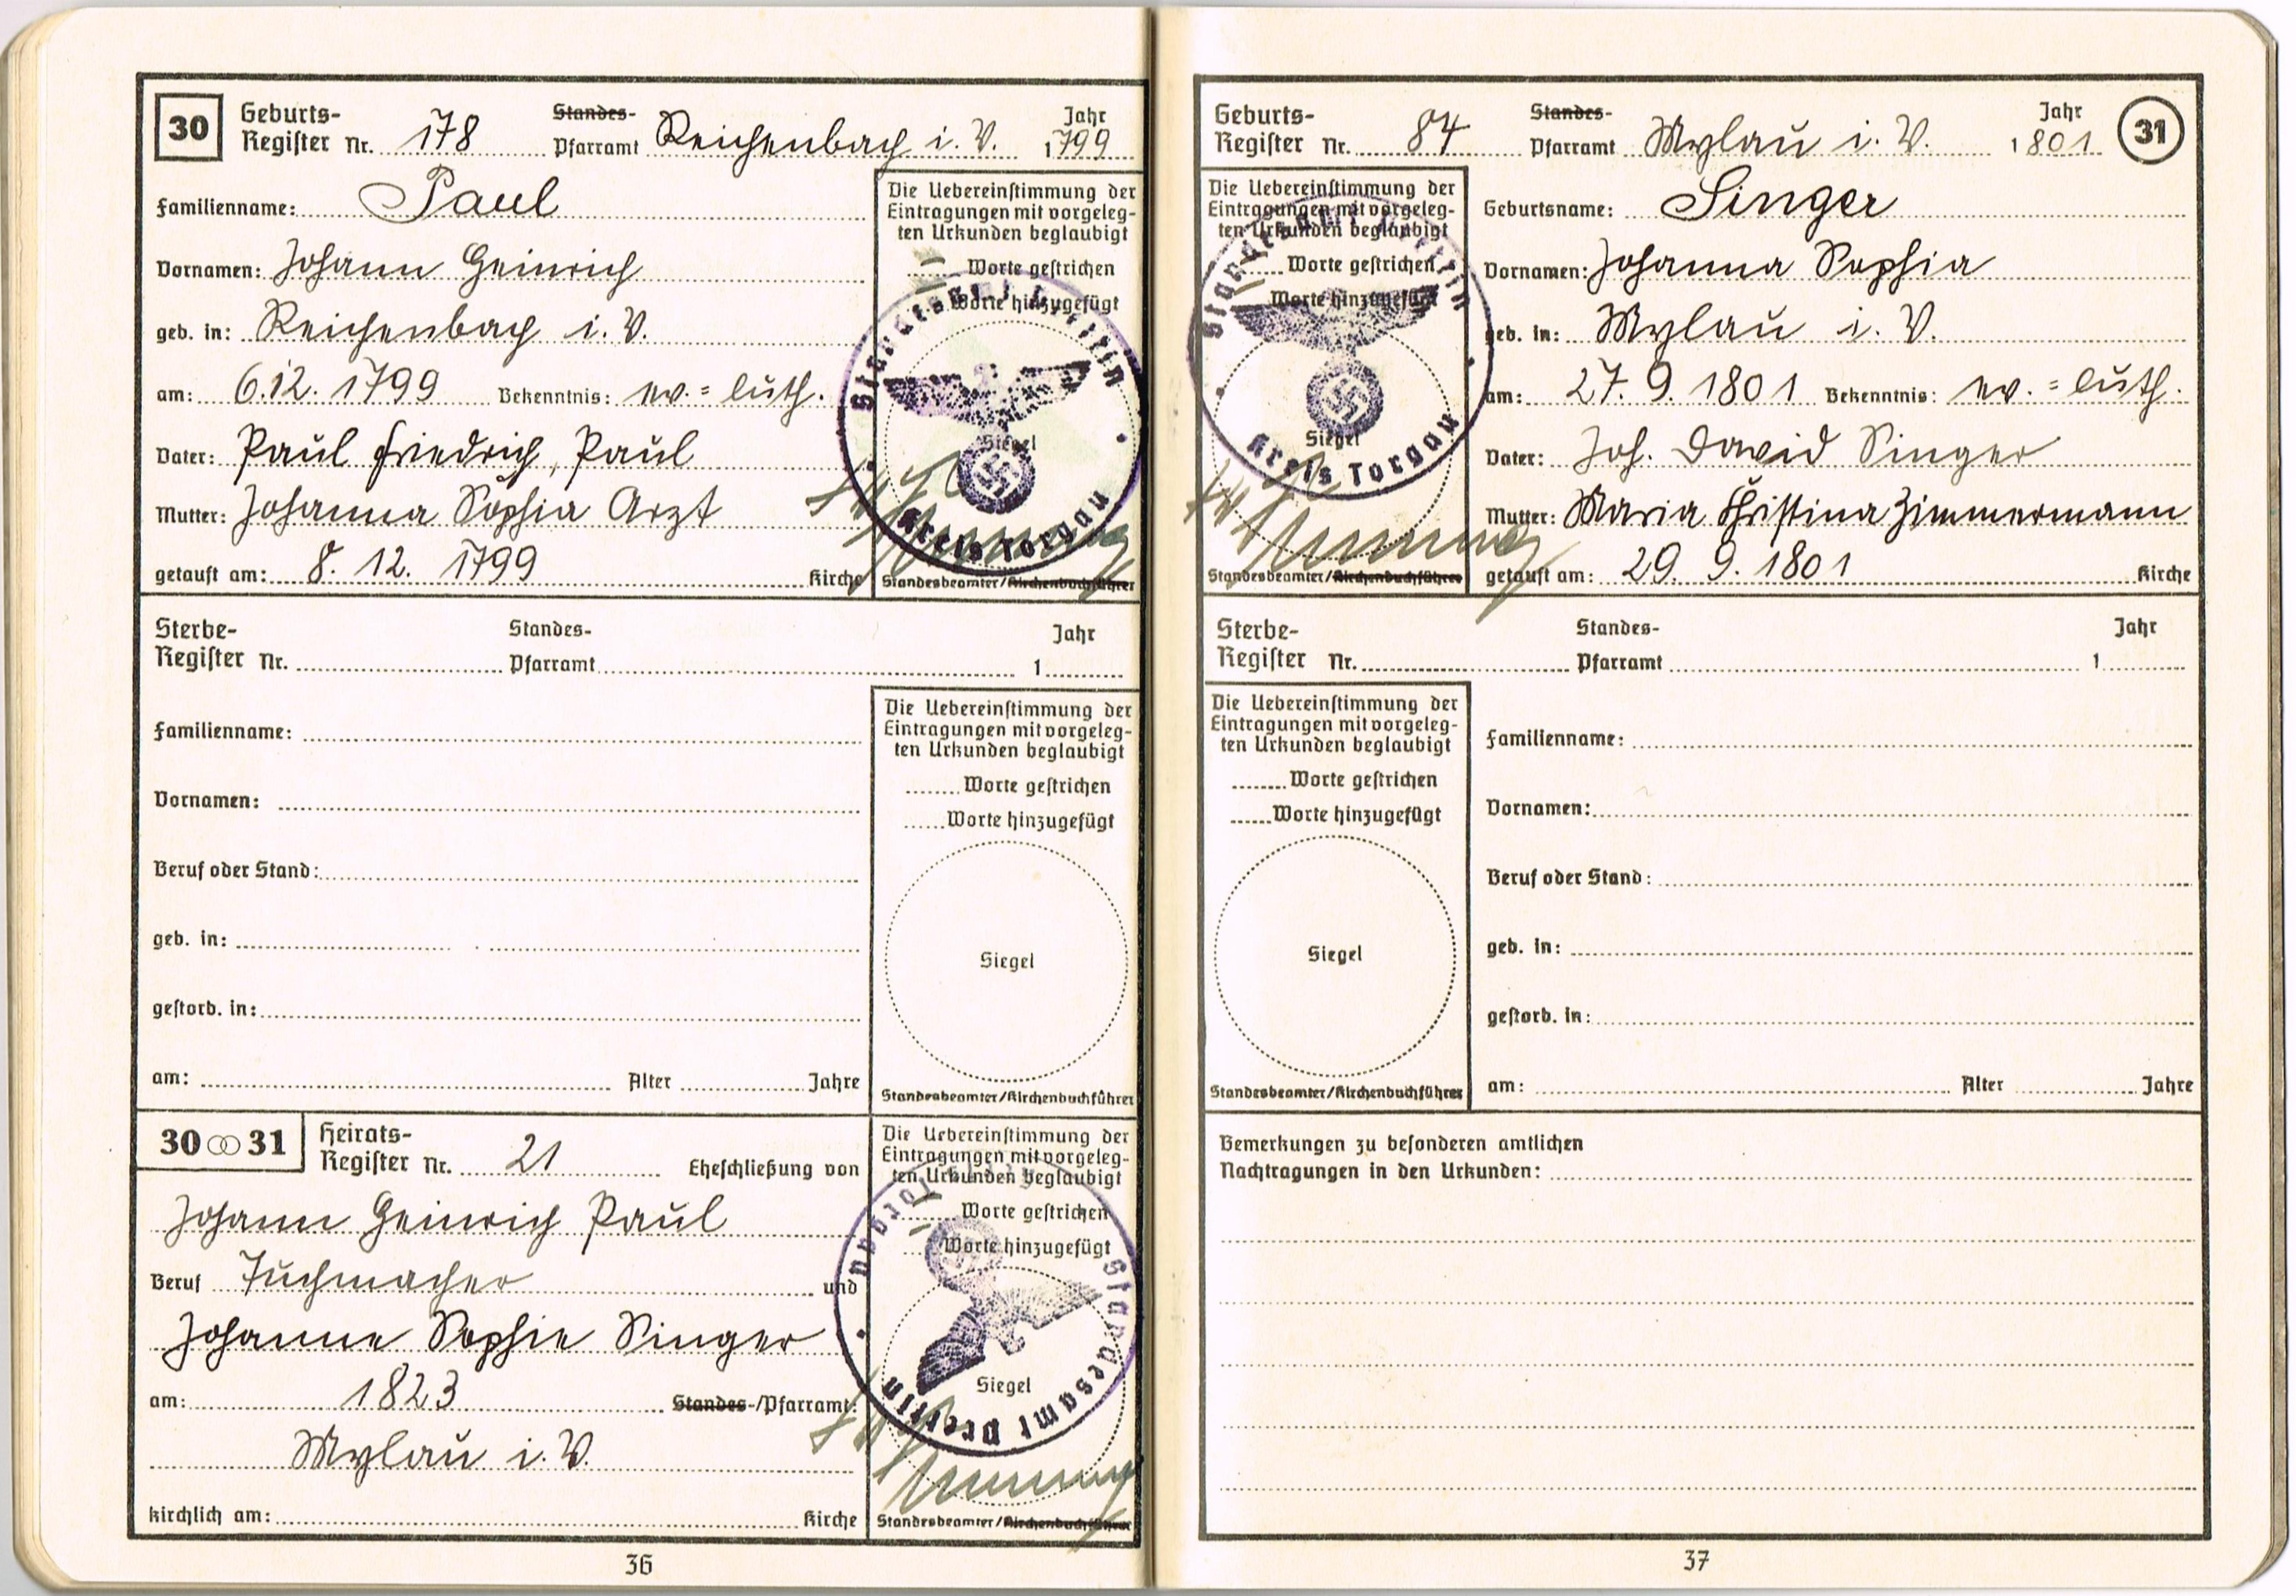 30 Geburts- Standes- Jahr
Register Nr. 178 Pfarramt Reichenbach i. V. 1799
Familienname: Paul
Vornamen: Johann Heinrich
geb. in: Reichenbach i. V.
am: 6.12. 1799 Bekenntnis: ev.=luth.
Vater: Paul Friedrich, Paul
Mutter: Johanna Sophia Arzt
getauft am: 8. 12. 1799 Kirche
Die Uebereinstimmung der
Eintragungen mit vorgeleg-
ten Urkunden beglaubigt
Worte gestrichen
Worte hinzugefügt
Siegel
Standesamt Prettin
Kreis Torgau
Standesbeamter/Kirchenbuchführer
Sterbe- Standes- Jahr
Register Nr. Pfarramt 1
Familienname:
Vornamen:
Beruf oder Stand:
geb. in:
gestorb. in:
am: Alter Jahre
Die Uebereinstimmung der
Eintragungen mit vorgeleg-
ten Urkunden beglaubigt
Worte gestrichen
Worte hinzugefügt
Siegel
Standesbeamter/Kirchenbuchführer
30 ⚭ 31 Heirats-
Register Nr. 21 Eheschließung von
Johann Heinrich Paul
Beruf Tuchmacher und
Johanne Sophie Singer
am: 1823 Standes-/Pfarramt:
Mylau i. V.
kirchlich am: Kirche
Die Uebereinstimmung der
Eintragungen mit vorgeleg-
ten Urkunden beglaubigt
Worte gestrichen
Worte hinzugefügt
Siegel
Standesamt Prettin
Kreis Torgau
Standesbeamter/Kirchenbuchführer
36
Geburts- Standes- Jahr 31
Register Nr. 84 Pfarramt Mylau i. V. 1801
Die Uebereinstimmung der
Eintragungen mit vorgeleg-
ten Urkunden beglaubigt
Worte gestrichen
Worte hinzugefügt
Siegel
Standesamt Prettin
Kreis Torgau
Standesbeamter/Kirchenbuchführer
Geburtsname: Singer
Vornamen: Johanna Sophia
geb. in: Mylau i. V.
am: 27. 9. 1801 Bekenntnis: ev.=luth.
Vater: Joh. David Singer
Mutter: Maria Christina Zimmermann
getauft am: 29. 9. 1801 Kirche
Sterbe- Standes- Jahr
Register Nr. Pfarramt 1
Die Uebereinstimmung der
Eintragungen mit vorgeleg-
ten Urkunden beglaubigt
Worte gestrichen
Worte hinzugefügt
Siegel
Standesbeamter/Kirchenbuchführer
Familienname:
Vornamen:
Beruf oder Stand:
geb. in:
gestorb. in:
am: Alter Jahre
Bemerkungen zu besonderen amtlichen
Nachtragungen in den Urkunden:
37